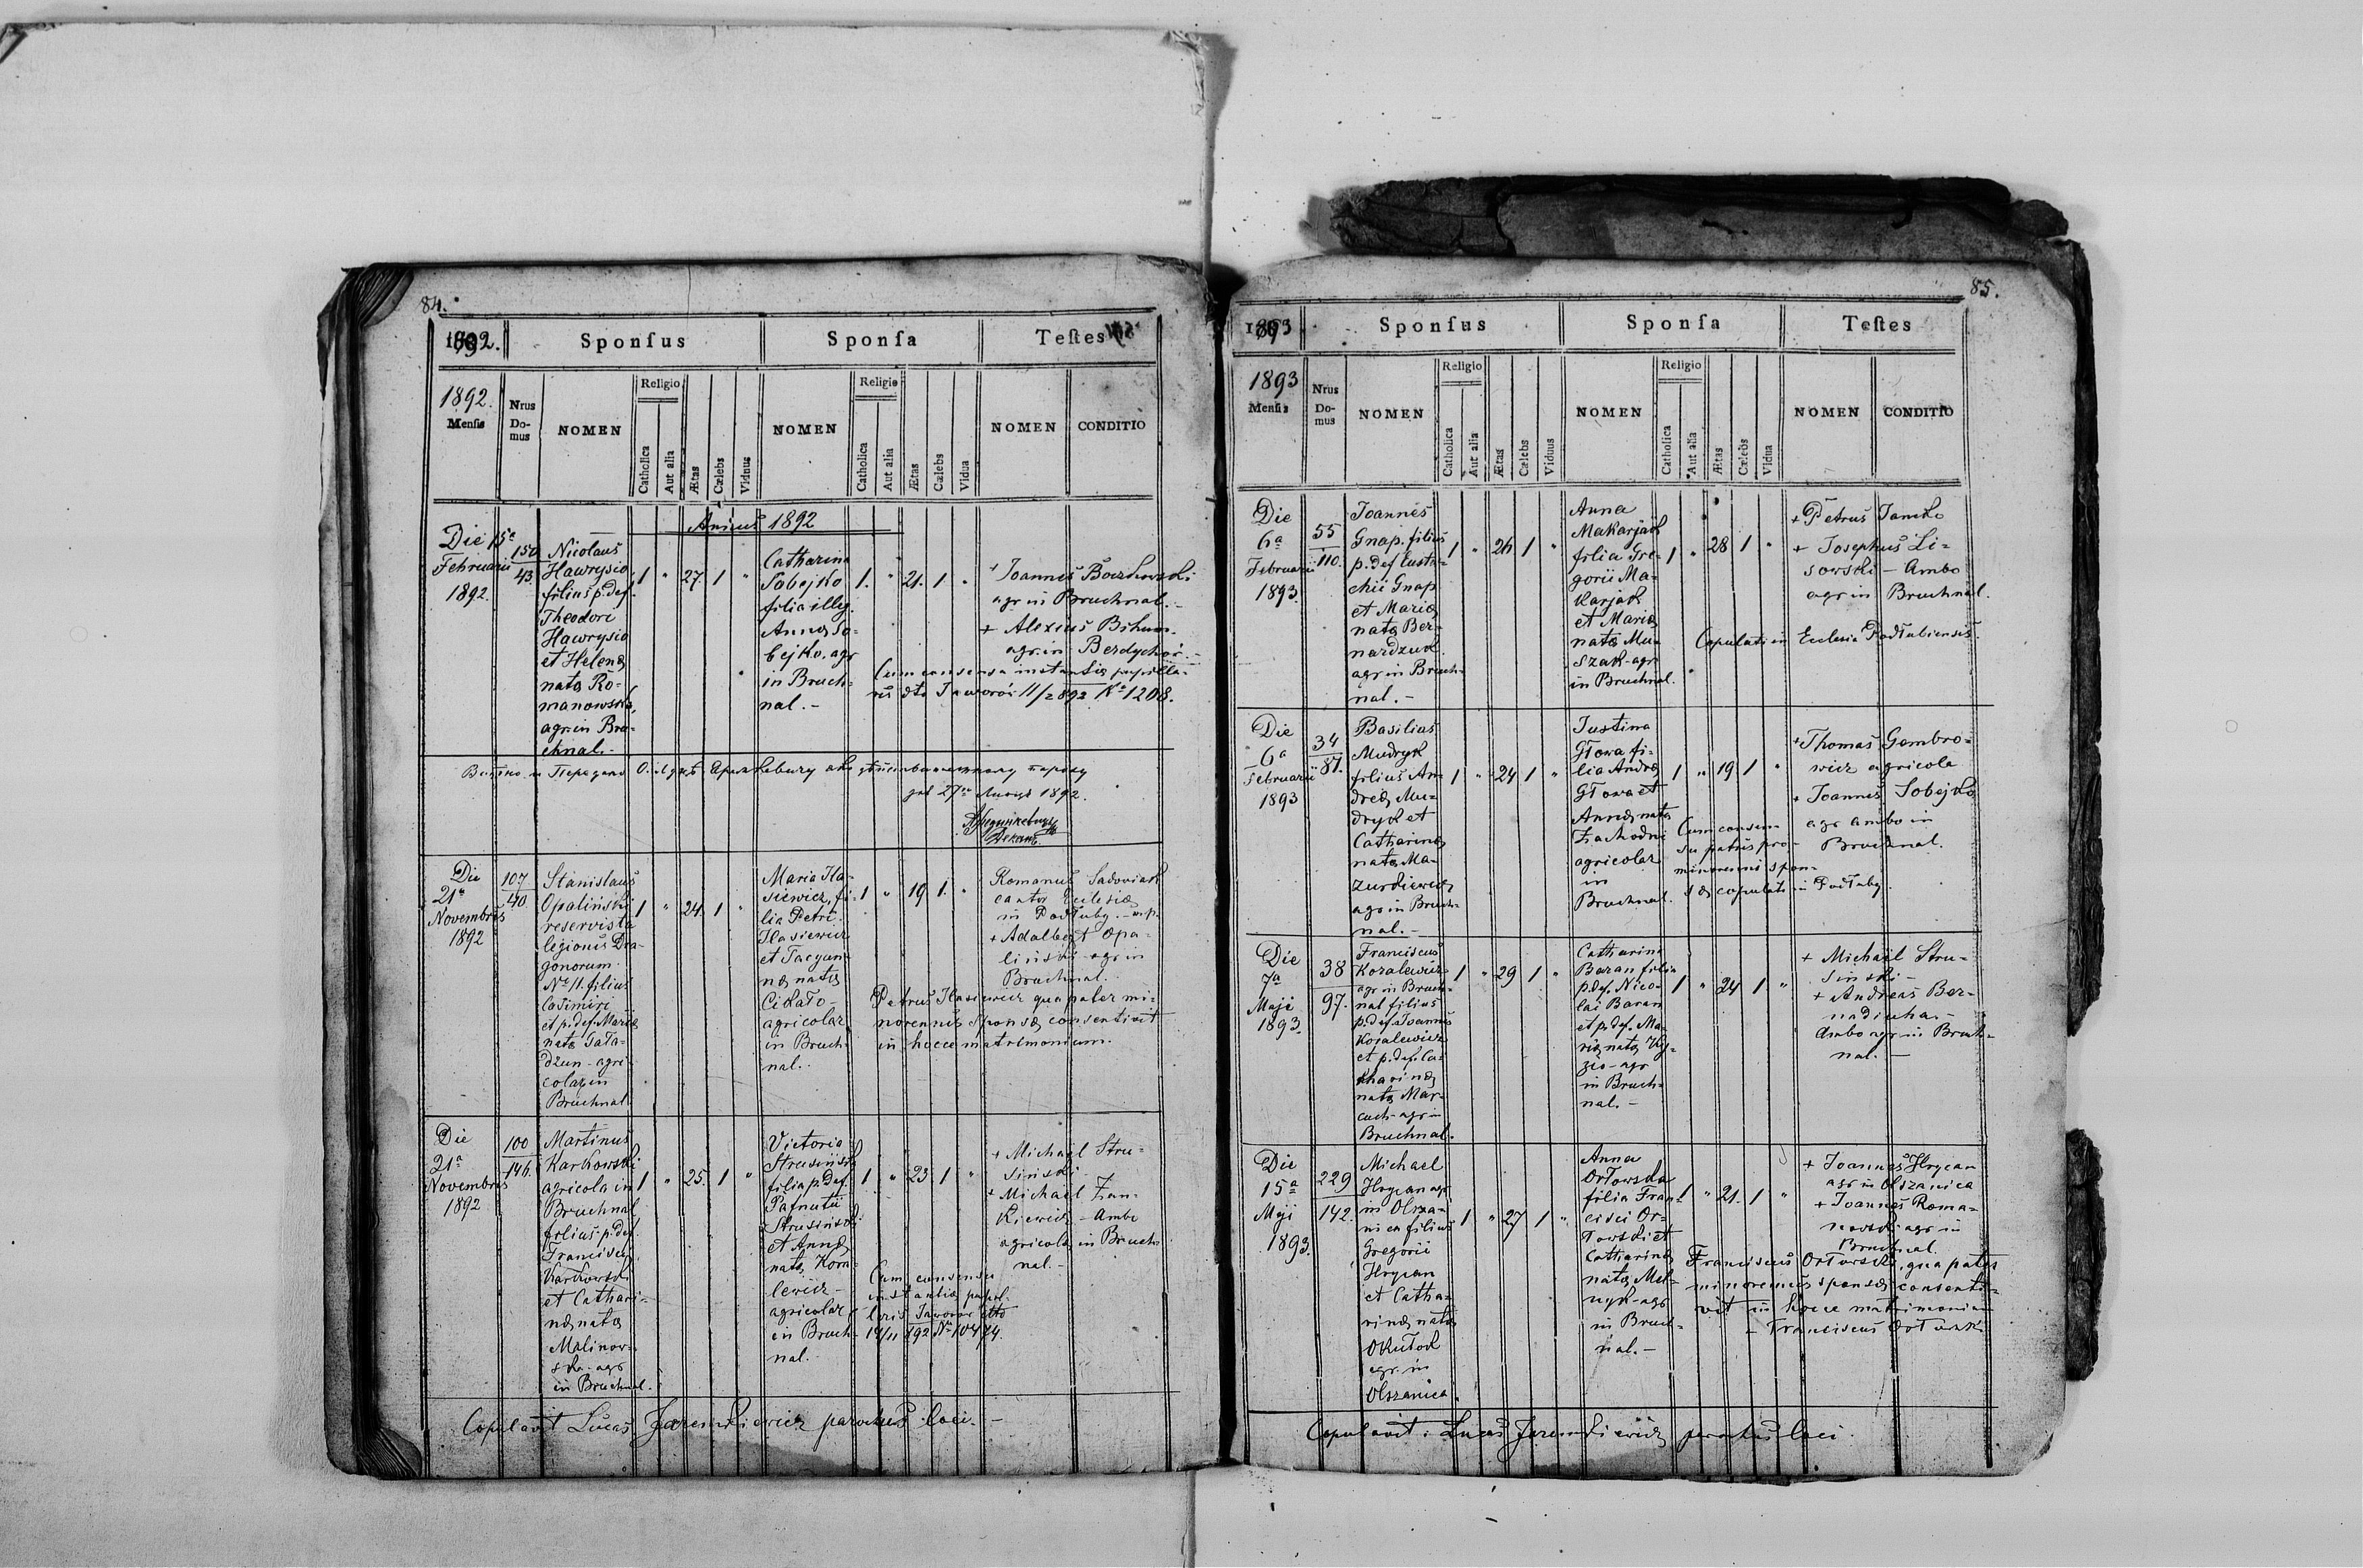 84.
1892.
Sponsus
Sponsa
Testes
1892.
Mensis
Nrus Do-mus
NOMEN
Religio
Catholica
Aut alia
Ætas
Cælebs
Viduus
NOMEN
Religio
Catholica
Aut alia
Ætas
Cælebs
Vidua
NOMEN
CONDITIO
Annus 1892
Die 15a
Februarii
1892.
150
43.
Nicolaus
Hawrysio
filius p. def.
Theodori
Hawrysio
et Helenæ
natæ Ro-
manowska,
agr. in Bru-
chnal.-
1 " 27. 1 "
Catharina
Sobejko
filia illeg.
Annæ So-
bejko. agr
in Bruch-
nal.-
1. " 21. 1 "
+ Joannes
agr in Bruchnal.-
+ Alexius
agr. in Berdychów.-
Cum consensu instantiæ pupilla-
ris dto Jaworów 11/2 892 No 1208.
27 1892.
Die
21a
Novembris
1892
107
40
Stanislaus
Opaliński
reservista
legionis Dra-
gonorum
No 11. filius
Casimiri
et p. def. Mariæ
natæ
agri-
colæ in
Bruchnal
1 " 24. 1 "
Maria Ila-
siewicz, fi-
lia Petri
Ilasiewicz
et Tacyan-
næ natæ
agricolar
in Bruch-
nal.
1 " 19 1. "
Romanus Sadoviak
cantor Ecclesiæ
in Podłuby.
+ Adalbert Opa-
liński agr in
Bruchnal.
Petrus Ilasiewicz qua pater mi-
norennis sponsæ consentivit
in hocce matrimonium.
Die
21a
Novembris
1892
100
146.
Martinus
Karkowski
agricola in
Bruchnal
filius p. def.
Francisci
Karkowski
et Cathari-
næ natæ
Malinow-
ska - agr
in Bruchnal.
1 " 25. 1 "
Victoria
Strusińska
filia p. def.
Pafnutii
Strusiński
et Annæ
natæ Koza-
lewicz -
agricolar
in Bruch-
nal.
1. " 23 1 "
+ Michael Stru-
siński
+ Michael
Kiewicz - Ambo
agricolæ in Bruch
nal.-
Cum consensu
instantiæ pupil-
laris Jaworow dto
14/11 892 No 10474.
Copulavit Lucas parochus loci.-
85.
1893
Sponsus
Sponsa
Testes
1893
Mensis
Nrus Do-mus
NOMEN
Religio
Catholica
Aut alia
Ætas
Cælebs
Viduus
NOMEN
Religio
Catholica
Aut alia
Ætas
Cælebs
Vidua
NOMEN
CONDITIO
Die
6a
Februarii
1893.
55
110.
Joannes
Gnap. filius
p. def Eusta-
chii Gnap
et Mariæ
natæ Ber-
nardzuk
agr in Bruch-
nal.-
1 " 26 1 "
Anna
Makarjak
filia Gre-
gorii Ma-
karjak
et Mariæ
natæ Mu-
szak - agr
in Bruchnal.
1 " 28 1 "
+ Petrus Jancko
+ Josephus Li-
sowski - Ambo
agr in Bruchnal.
Copulati in Ecclesia Podlubiensis.
Die
6a
Februarii
1893
34
87.
Basilius
Mudryk
filius An-
dreæ Mu-
dryk et
Catharinæ
natæ Ma-
zurkiewicz
agr in Bruch-
nal.-
1 " 24 1 "
Justina
Głowa fi-
lia Andreæ
Głowa et
Annæ natæ
agricolar
in
Bruchnal.
1 " 19 1 "
+ Thomas Gembro-
wicz agricola
+ Joannes Sobejko
agr ambo in
Bruchnal.
Cum consen-
su patris pro-
minorenni spon-
sæ copulati in Podłuby.
Die
7a
Maji
1893.
38
97.
Franciscus
Kozalewicz
agr in Bruch-
nal filius
p. def. Joannis
Kozalewicz
et p. def. Ca-
tharinæ
natæ Mar-
cuch - agr in
Bruchnal.
1 " 29 1 "
Catharina
Baran filia
p. def. Nico-
lai Baran
et p. def. Ma-
riæ natæ
agr
in Bruch-
nal.-
1 " 24 1 "
+ Michael Stru-
siński -
+ Andreas Ber-
nadiuha.-
Ambo agr in Bruch-
nal.-
Die
15a
Maji
1893.
229
142.
Michael
Hrycan agr
in Olsza-
nica filius
Gregorii
Hrycan
et Catha-
rinæ natæ
Okułok
agr. in
Olszanica.
1 " 27 1 "
Anna
Orłowska
filia Fran-
cisci Or-
łowski et
Catharinæ
natæ Mel-
nyk - agr
in Bruch-
nal.-
1 " 21. 1 "
+ Joannes Hrycan
agr in Olszanica
+ Joannes Roma-
nowski agr in
Bruchnal.
Franciscus Orłowski, qua pater
minorennis sponsæ consenti-
vit in hocce matrimonium
- Franciscus Orłowski
Copulavit: Lucas parochus loci.